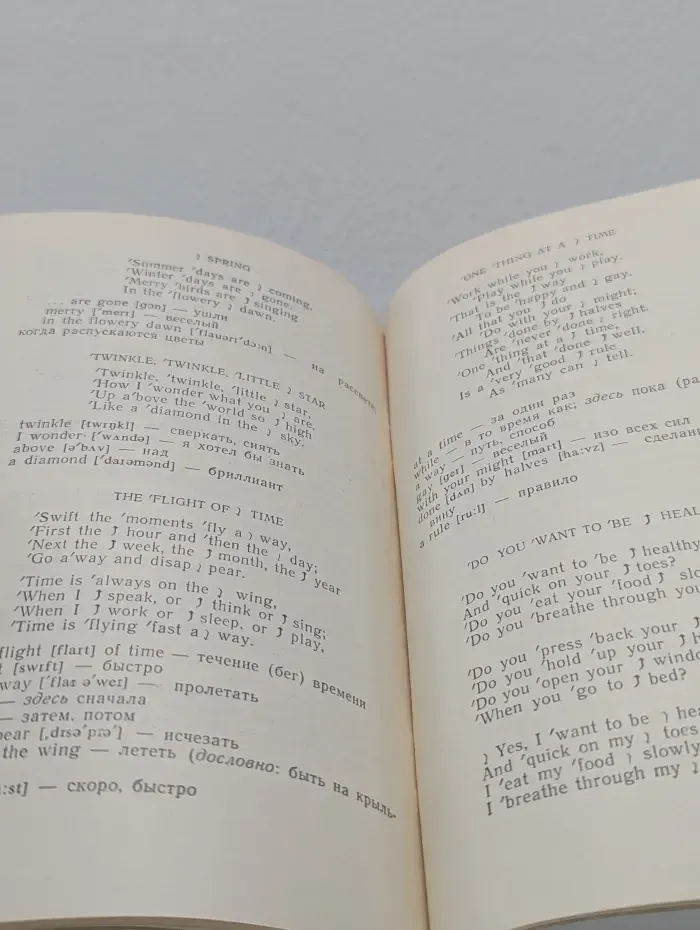 ℩ SPRING
'Summer 'days are ℩ coming,
'Winter 'days are ℩ gone,
'Merry 'birds are ℩ singing
In the 'flowery ℩ dawn.
... are gone [gɒn] — ушли
merry ['merɪ] — веселый
in the flowery dawn ['flauərɪ'dɔ:n] — на рассвете,
когда распускаются цветы
'TWINKLE, 'TWINKLE, 'LITTLE ℩ STAR
'Twinkle, 'twinkle, 'little ℩ star,
'How I 'wonder what you ℩ are,
'Up a'bove the 'world so ⤴ high
'Like a 'diamond in the ℩ sky.
twinkle [twɪŋkl] — сверкать, сиять
I wonder ['wʌndə] — я хотел бы знать
above [ə'bʌv] — над
a diamond ['daɪəmənd] — бриллиант
THE 'FLIGHT OF ℩ TIME
'Swift the 'moments 'fly a ℩ way,
'First the ⤴ hour and 'then the ℩ day;
'Next the ⤴ week, the ⤴ month, the ⤴ year
'Go a'way and disap ℩ pear.
'Time is 'always on the ℩ wing,
'When I ⤴ speak, or ⤴ think or ⤴ sing;
'When I ⤴ work or ⤴ sleep, or ⤴ play,
'Time is 'flying 'fast a ℩ way.
flight [flaɪt] of time — течение (бег) времени
t [swɪft] — быстро
way ['flaɪ ə'weɪ] — пролетать
— здесь сначала
— затем, потом
pear [ˌdɪsə'pɪə] — исчезать
the wing — лететь (дословно: быть на крыль-
:st] — скоро, быстро
'ONE 'THING AT A ℩ TIME
'Work while you ℩ work,
'Play while you ℩ play.
'That is the ⤴ way
To be 'happy and ℩ gay.
'All that you ⤴ do
'Do with your ℩ might;
'Things 'done by ⤴ halves
Are 'never 'done ℩ right.
'One 'thing at a ⤴ time,
And 'that 'done ⤴ well,
Is a 'very 'good ⤴ rule
As 'many can ℩ tell.
at a time — за один раз
while — в то время как; здесь пока (ра
a way — путь, способ
gay [geɪ] — веселый
with your might [maɪt] — изо всех сил
done [dʌn] by halves [ha:vz] — сделанн
вину
a rule [ru:l] — правило
'DO YOU 'WANT TO 'BE ⤴ HEAL
'Do you 'want to 'be ⤴ healthy
And 'quick on your ⤴ toes?
'Do you 'eat your 'food ⤴ slo
'Do you 'breathe through you
'Do you 'press 'back your ⤴
'Do you 'hold 'up your ⤴ h
'Do you 'open your ⤴ windo
'When you 'go to ⤴ bed?
℩ Yes, I 'want to be ℩ hea
And 'quick on my ℩ toes
I 'eat my 'food ℩ slowly
I 'breathe through my ℩